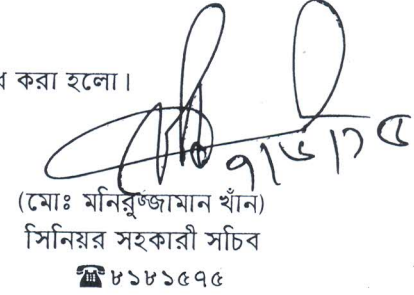 করা হলো।
৭।৬।১৫
(মোঃ মনিরুজ্জামান খাঁন)
সিনিয়র সহকারী সচিব
☎৮১৮১৫৭৫